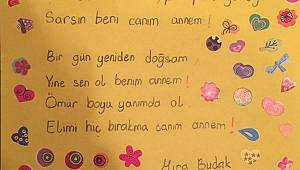 Sarsın beni canım annem!
Bir gün yeniden doğsam
Yine sen ol benim annem!
Ömür boyu yanımda ol.
Elimi hiç bırakma canım annem!
Mira Budak